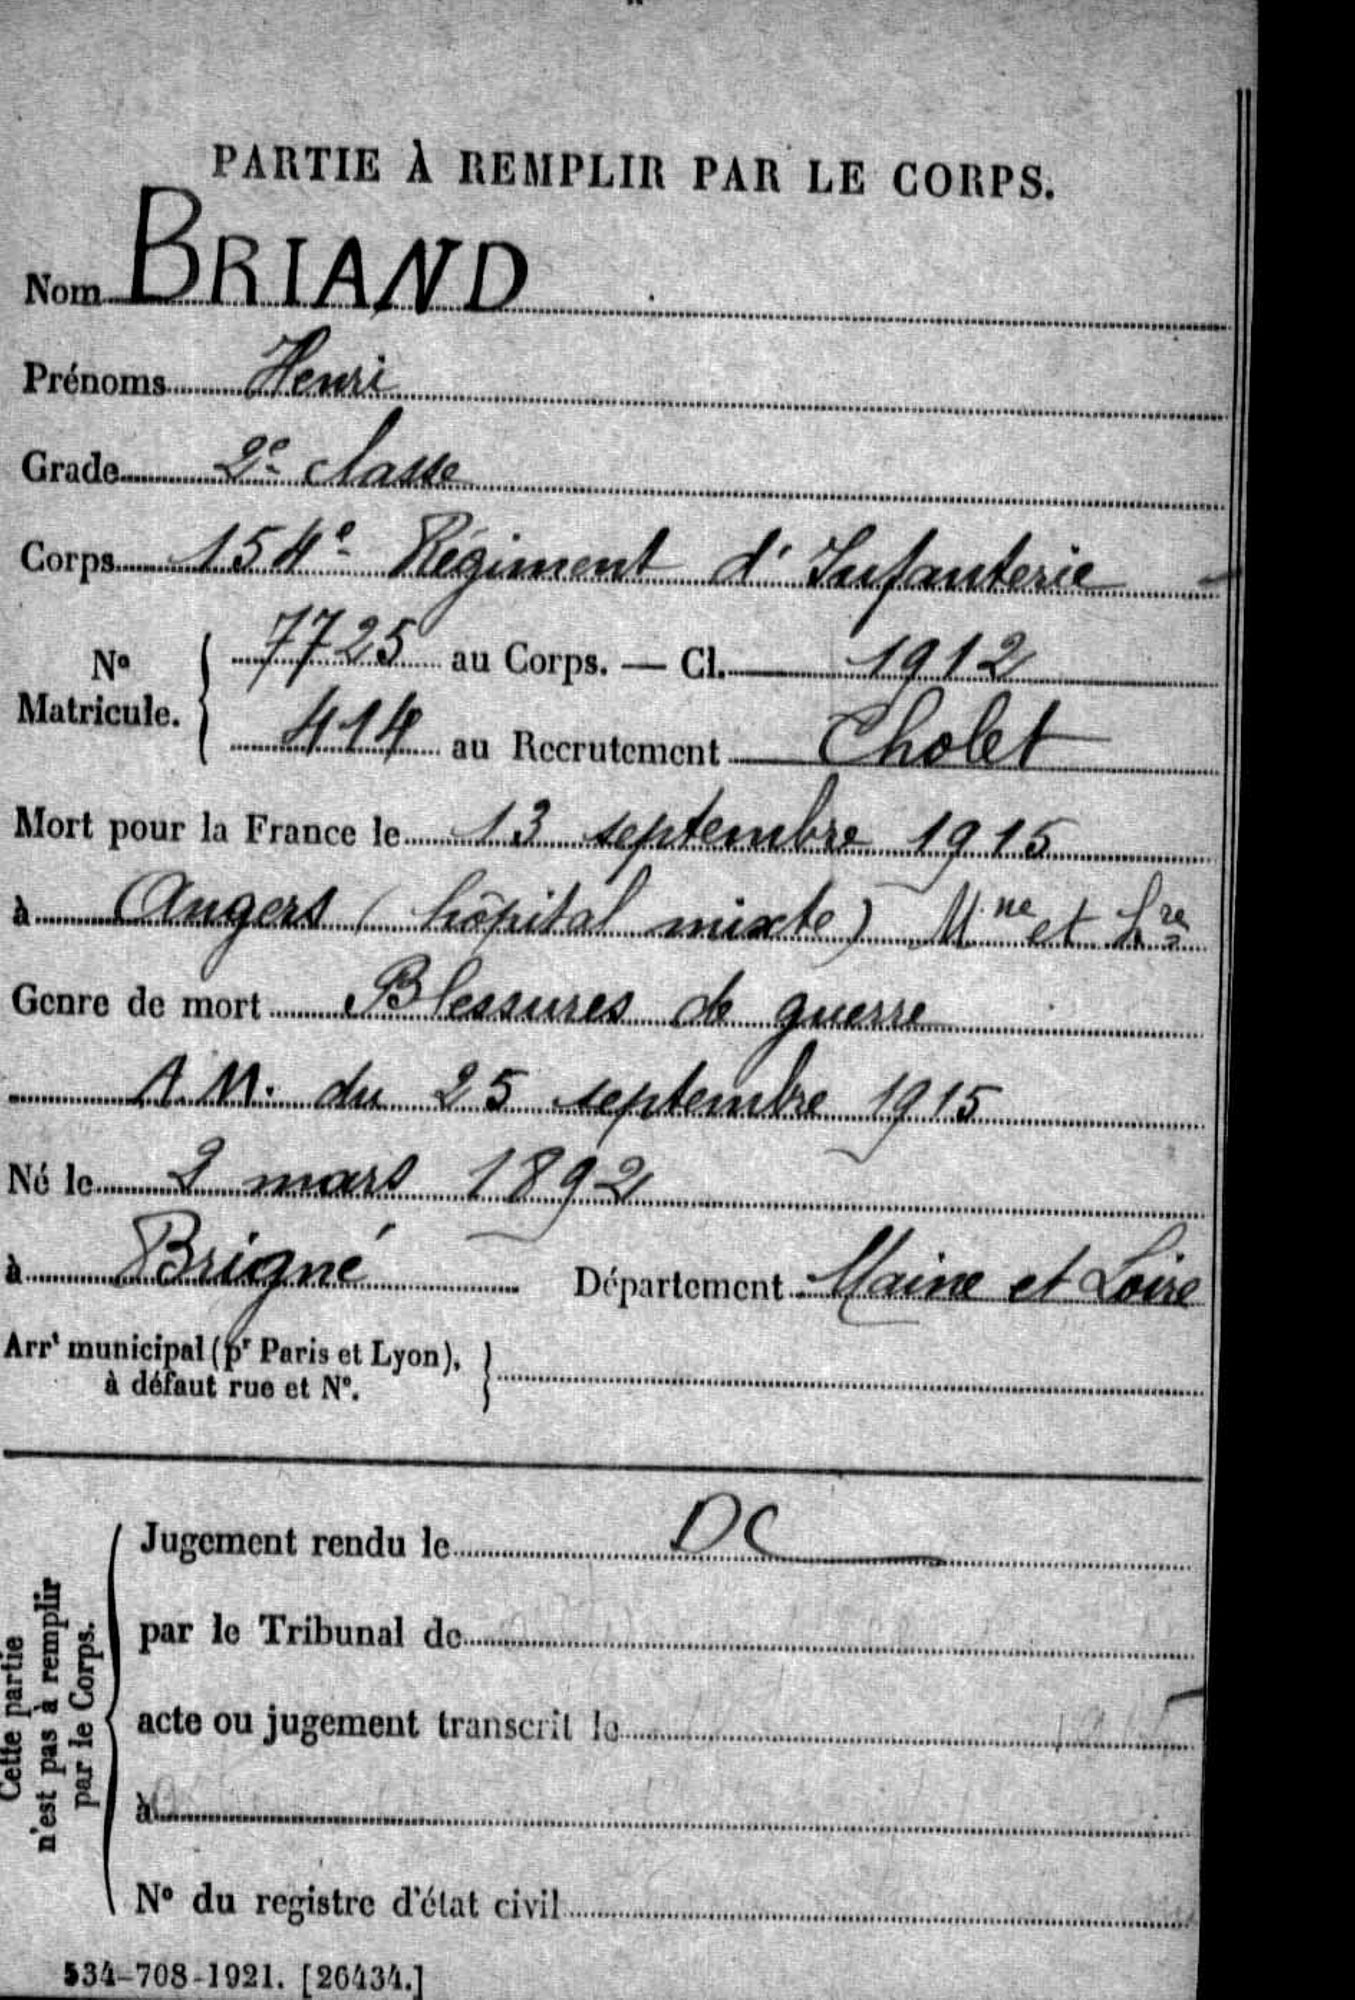 PARTIE À REMPLIR PAR LE CORPS.
Nom BRIAND
Prénoms Henri
Grade 2e classe
Corps 154e Régiment d'Infanterie
No Matricule. { 7725 au Corps. — Cl. 1912
414 au Recrutement Cholet
Mort pour la France le 13 septembre 1915
à Angers (hôpital mixte) Mne et Lre
Genre de mort Blessures de guerre
A.M. du 25 septembre 1915
Né le 2 mars 1892
à Brigné Département Maine et Loire
Arrt municipal (pr Paris et Lyon), }
à défaut rue et No.
Cette partie
n'est pas à remplir
par le Corps.
Jugement rendu le DC
par le Tribunal de
acte ou jugement transcrit le
à
No du registre d'état civil
534-708-1921. [26434.]